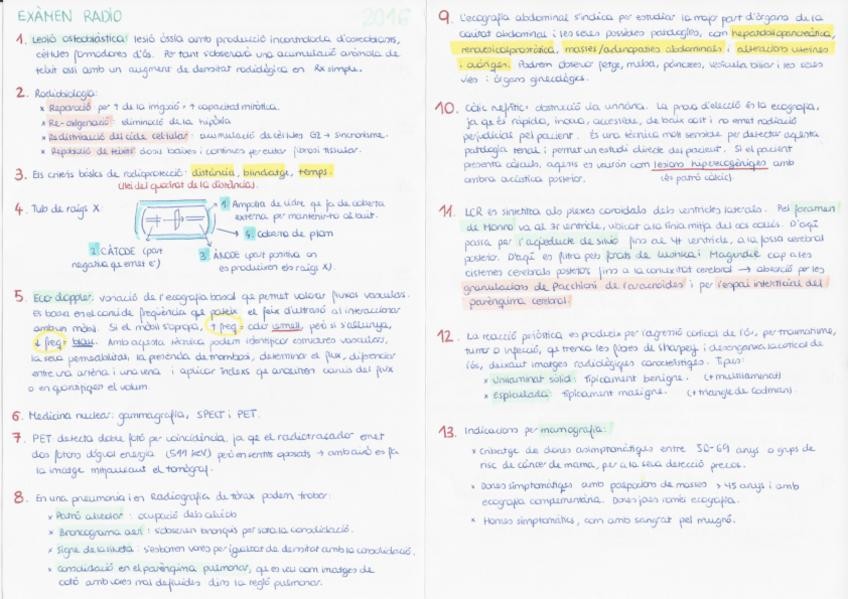 EXÀMEN RADIO
2016
1. Lesió osteoblàstica: lesió òssia amb producció incontrolada d'osteoblasts,
cèl·lules formadores d'ós. Per tant s'observarà una acumulació anòmala de
teixit ossi amb un augment de densitat radiològica en Rx simple.
2. Radiobiologia:
× Reparació per ↑ de la irrigació = ↑ capacitat mitòtica.
× Re-oxigenació: eliminació de la hipòxia
× Redistribució del cicle cel·lular: acumulació de cèl·lules G2 → sincronisme.
× Repoblació de teixits: dosis baixes i contínues per evitar fibrosi tissular.
3. Els criteris bàsics de radioprotecció: distància, blindatge, temps.
(llei del quadrat de la distància).
4. Tub de raigs X:
1. Ampolla de vidre que fa de coberta
externa per mantenir-ho al buit.
4. Coberta de plom
2. CÀTODE (part
negativa que emet e-)
3. ÀNODE (part positiva on
es produeixen els raigs X).
5. Eco doppler: variació de l'ecografia basal que permet valorar fluxos vasculars.
Es basa en el canvi de freqüència que pateix el feix d'ultrasò al interaccionar
amb un mòbil. Si el mòbil s'apropa, ↑ freq = color vermell, però si s'allunya,
↓ freq = blau. Amb aquesta tècnica podem identificar estructures vasculars,
la seva permeabilitat, la presència de trombosi, determinar el flux, diferenciar
entre una artèria i una vena i aplicar índexs que anuncien canvis del flux
o en quantifiquen el volum.
6. Medicina nuclear: gammagrafia, SPECT i PET.
7. PET detecta doble fotó per coincidència, ja que el radiotraçador emet
dos fotons d'igual energia (511 keV) però en sentits oposats → amb això es fa
la imatge mitjançant el tomògraf.
8. En una pneumònia i en Radiografia de tòrax podem trobar:
× Patró alveolar: ocupació dels alvèols
× Broncograma aeri: s'observen bronquis per sota la consolidació.
× Signe de la silueta: s'esborren vores per igualtat de densitat amb la consolidació.
× Consolidació en el parènquima pulmonar, que es veu com imatges de
cotó amb vores mal definides dins la regió pulmonar.
9. L'ecografia abdominal s'indica per estudiar la major part d'òrgans de la
cavitat abdominal i les seves possibles patologies, com hepatobiliopancreàtica,
renovesicoprostàtica, masses/adenopaties abdominals i alteracions uterines
i ovàriques. Podrem observar fetge, melsa, pàncrees, vesícula biliar i les seves
vies i òrgans ginecològics.
10. Còlic nefrític: obstrucció via urinària. La prova d'elecció és la ecografia,
ja que és ràpida, innòcua, accessible, de baix cost i no emet radiació
perjudicial pel pacient. És una tècnica molt sensible per detectar aquesta
patologia renal i permet un estudi directe del pacient. Si el pacient
presenta càlculs, aquests es veuran com lesions hiperecogèniques amb
ombra acústica posterior. (és patró càlcic).
11. LCR es sintetitza als plexes coroidals dels ventricles laterals. Pel foramen
de Monro va al 3r ventricle, ubicat a la línia mitja del cos callós. D'aquí
passa per l'aqüeducte de silvio fins al 4t ventricle, a la fossa cerebral
posterior. D'aquí es filtra pels forats de Luschka i Magendie cap a les
cisternes cerebrals posteriors fins a la convexitat cerebral → absorció per les
granulacions de Pacchioni de l'aracnoides i per l'espai intersticial del
parènquima cerebral.
12. La reacció periòstica es produeix per l'agressió cortical de l'ós, per traumatisme,
tumor o infecció, que trenca les fibres de Sharpey i desorganitza la cortical de
l'ós, deixant imatges radiològiques característiques. Tipus:
× Unilaminat sòlid: Típicament benigne. (+ multilaminat)
× Espiculada: Típicament maligne. (+ triangle de Codman).
13. Indicacions per mamografia:
× Cribatge de dones asimptomàtiques entre 50-69 anys o grups de
risc de càncer de mama, per a la seva detecció precoç.
× Dones simptomàtiques amb palpacions de masses > 45 anys i amb
ecografia complementària. Dones joves només ecografia.
× Homes simptomàtics, com amb sangrat pel mugró.